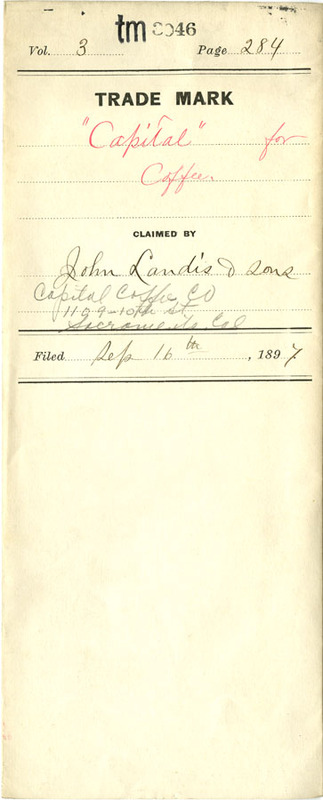 tm 3046
Vol. 3 Page 284
TRADE MARK
"Capital" for
Coffee.
CLAIMED BY
John Landis & sons
Capital Coffe CO
1109-10th st
Sacramento Cal
Filed Sep 16th, 1897